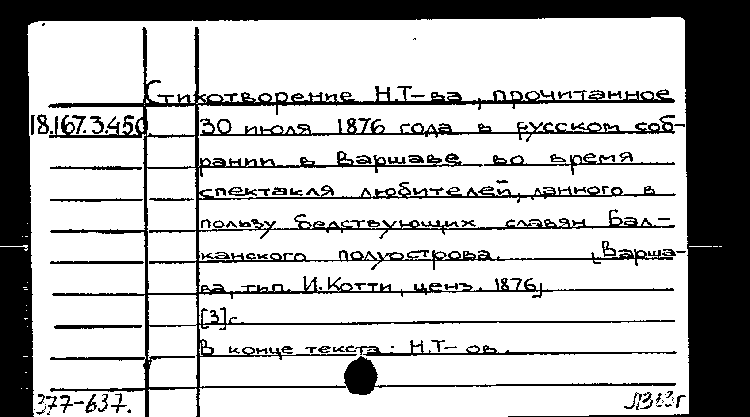 Стихотворение Н.Т-ва, прочитанное
18.167.3.450
30 июля 1876 года в русском соб-
рании в Варшаве во время
спектакля любителей, данного в
пользу бедствующих славян Бал-
канского полуострова. [Варша-
ва, тип. И.Котти, ценз. 1876]
[3]с.
В конце текста: Н.Т-ов.
377-637.